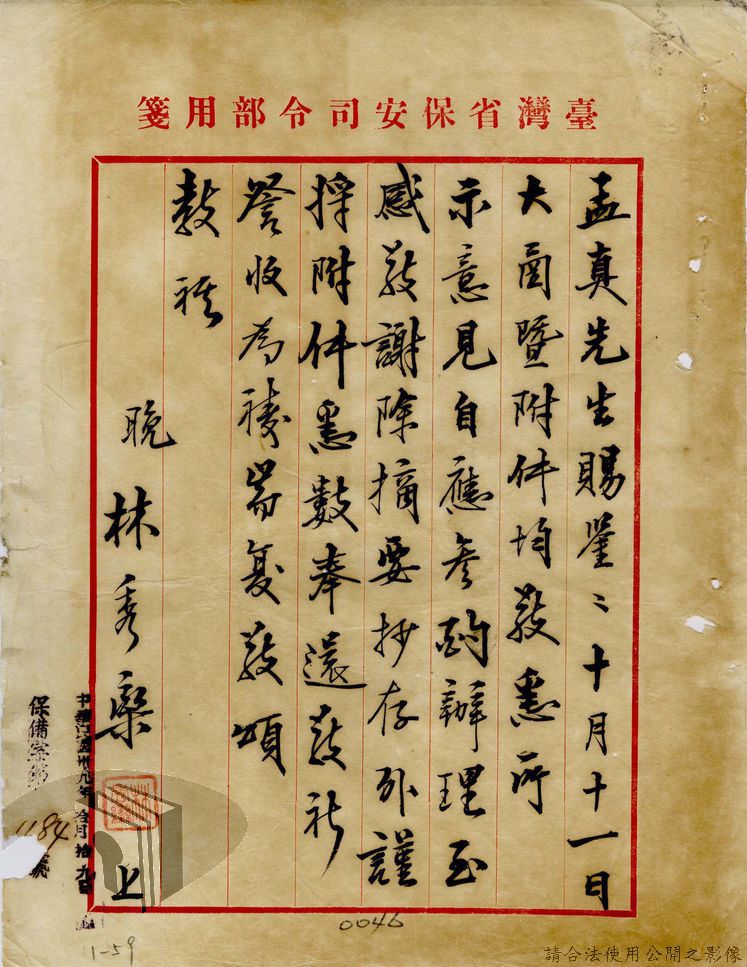 臺灣省保安司令部用箋
孟真先生賜鑒：十月十一日
大函暨附件均敬悉所
示意見自應參酌辦理至
感敬謝除摘要抄存外謹
擇附件悉數奉還敬祈
詧收為禱耑复敬頌
教祺
晚 林秀欒 上
中華民國卅九年拾月拾九日
1184
號
0046
11-59
請合法使用公開之影像